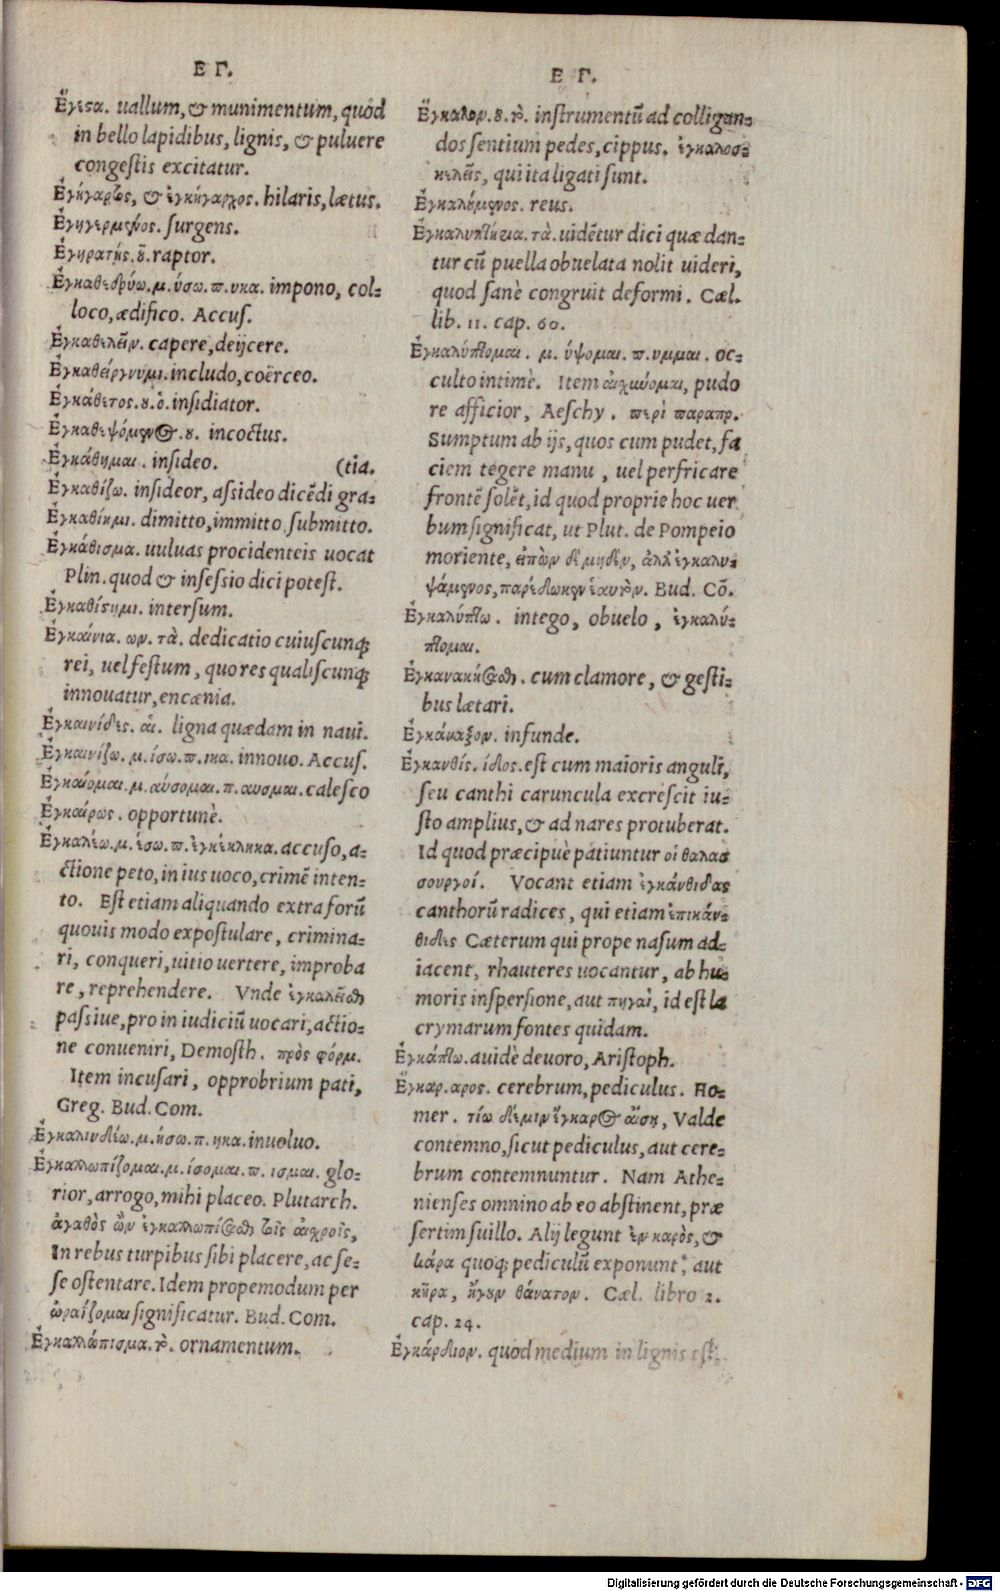 Ε Γ.
Ἔγεσα. uallum, & munimentum, quod
in bello lapidibus, lignis, & puluere
congestis excitatur.
Ἐγήγαρτος, & ἐγκήγαρχος. hilaris, lætus.
Ἐγηγερμένος. surgens.
Ἐγηρατής. ȣ͂. raptor.
Ἐγκαθεδρύω. μ. ύσω. π. υκα. impono, col-
loco, ædifico. Accus.
Ἐγκαθελεῖν. capere, deijcere.
Ἐγκαθείργνυμι. includo, coërceo.
Ἐγκάθετος. ȣ. ὁ. insidiator.
Ἐγκαθεψόμενος. ȣ. incoctus.
Ἐγκάθημαι. insideo. (tia.
Ἐγκαθίζω. insideor, assideo dicēdi gra-
Ἐγκαθίημι. dimitto, immitto submitto.
Ἐγκάθισμα. uuluas procidenteis uocat
Plin. quod & insessio dici potest.
Ἐγκαθίστημι. intersum.
Ἐγκαίνια. ων. τὰ. dedicatio cuiuscunq;
rei, uel festum, quo res qualiscunq;
innouatur, encænia.
Ἐγκαινίδες. αἱ. ligna quædam in naui.
Ἐγκαινίζω. μ. ίσω. π. ικα. innouo. Accus.
Ἐγκαίομαι. μ. αύσομαι. π. αυσμαι. calesco
Ἐγκαίρως. opportunè.
Ἐγκαλέω. μ. έσω. π. ἐγκέκληκα. accuso, a-
ctione peto, in ius uoco, crimē inten-
to. Est etiam aliquando extra forū
quouis modo expostulare, crimina-
ri, conqueri, uitio uertere, improba
re, reprehendere. Vnde ἐγκαλεῖσθαι
passiue, pro in iudiciū uocari, actio-
ne conueniri, Demosth. πρὸς φόρμ.
Item incusari, opprobrium pati,
Greg. Bud. Com.
Ἐγκαλινδέω. μ. ήσω. π. ηκα. inuoluo.
Ἐγκαλλωπίζομαι. μ. ίσομαι. π. ισμαι. glo-
rior, arrogo, mihi placeo. Plutarch.
ἀγαθὸς ὢν ἐγκαλλωπίζεσθαι τοῖς αἰχροῖς,
In rebus turpibus sibi placere, ac se-
se ostentare. Idem propemodum per
ὡραΐζομαι significatur. Bud. Com.
Ἐγκαλλώπισμα. τὸ. ornamentum.
Ε Γ.
Ἔγκαλον. ȣ. τὸ. instrumentū ad colligan-
dos sentium pedes, cippus. ἐγκαλοσ-
κελεῖς, qui ita ligati sunt.
Ἐγκαλούμενος. reus.
Ἐγκαλυπτήρια. τὰ. uidētur dici quæ dan-
tur cū puella obuelata nolit uideri,
quod sanè congruit deformi. Cæl.
lib. 11. cap. 60.
Ἐγκαλύπτομαι. μ. ύψομαι. π. υμμαι. oc-
culto intimè. Item αἰχιύομαι, pudo
re afficior, Aeschy. περὶ παραπρ.
Sumptum ab ijs, quos cum pudet, fa
ciem tegere manu, uel perfricare
frontē solēt, id quod proprie hoc uer
bum significat, ut Plut. de Pompeio
moriente, εἰπὼν δὲ μηδὲν, ἀλλ' ἐγκαλυ-
ψάμενος, παρέδωκεν ἑαυτὸν. Bud. Cō.
Ἐγκαλύπτω. intego, obuelo, ἐγκαλύ-
πτομαι.
Ἐγκανακήσασθαι. cum clamore, & gesti-
bus lætari.
Ἐγκάναξον. infunde.
Ἐγκανθίς. ίδος. est cum maioris anguli,
seu canthi caruncula excrescit iu-
sto amplius, & ad nares protuberat.
Id quod præcipuè patiuntur οἱ θαλασ
σουργοί. Vocant etiam ἐγκάνθιδας
canthorū radices, qui etiam ἐπικάν-
θιδες Cæterum qui prope nasum ad-
iacent, rhauteres uocantur, ab hu-
moris inspersione, aut πηγαὶ, id est la
crymarum fontes quidam.
Ἐγκάπτω. auidè deuoro, Aristoph.
Ἔγκαρ. αρος. cerebrum, pediculus. Ho-
mer. τίω δέ μιν ἔγκαρος αἴσῃ, Valde
contemno, sicut pediculus, aut cere-
brum contemnuntur. Nam Athe-
nienses omnino ab eo abstinent, præ
sertim suillo. Alij legunt ἐν καρὸς, &
κάρα quoq; pediculū exponunt, aut
κῆρα, ἤγουν θάνατον. Cæl. libro 2.
cap. 24.
Ἐγκάρδιον. quod medium in lignis est.
Digitalisierung gefördert durch die Deutsche Forschungsgemeinschaft - DFG